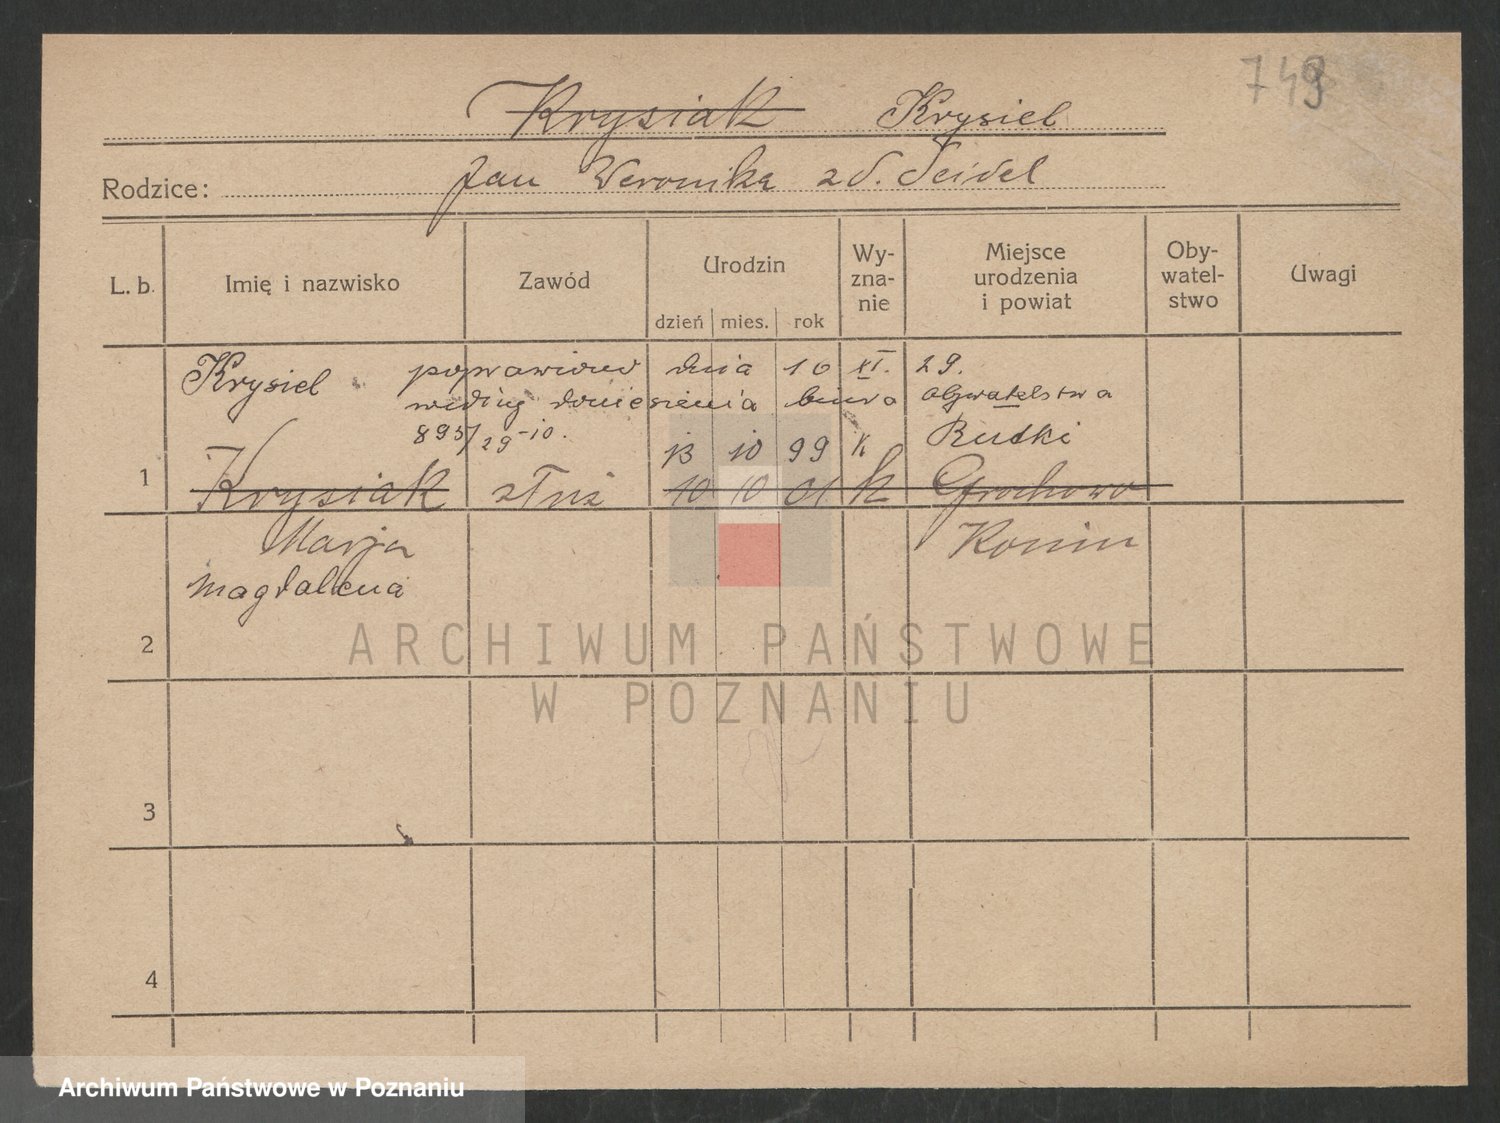 749
Krysiak Krysiel
Rodzice: Jan Weronika zd. Seidel
L. b. Imię i nazwisko Zawód Urodzin dzień mies. rok Wy-zna-nie Miejsce urodzenia i powiat Oby-watel-stwo Uwagi
Krysiel poprawiono dnia 16 XI. 29.
według doniesienia biura obywatelstwa
895/29 -10.
13 10 99 k Rudki
1 Krysiak służ 10 10 01 k Grochowo
Marja Konin
Magdalena
2
3
4
ARCHIWUM PAŃSTWOWE
W POZNANIU
Archiwum Państwowe w Poznaniu